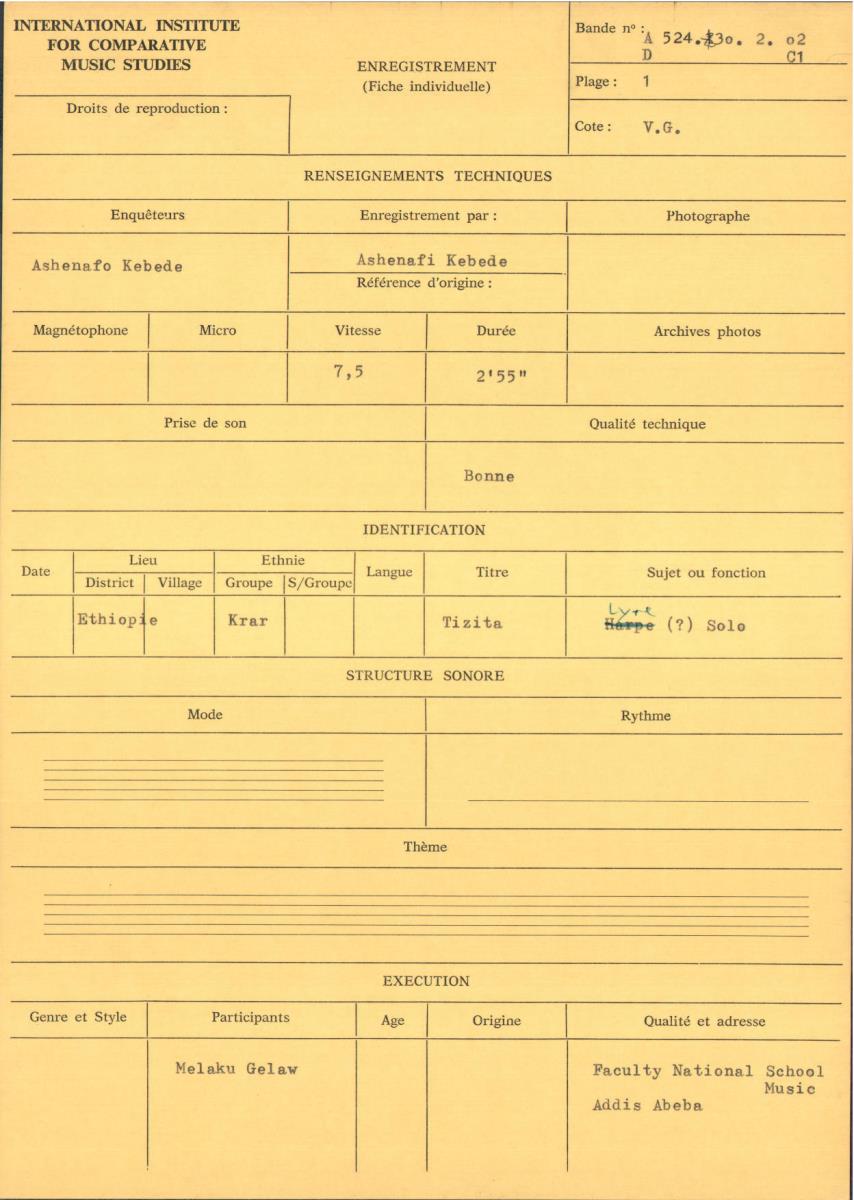 INTERNATIONAL INSTITUTE
FOR COMPARATIVE
MUSIC STUDIES
Droits de reproduction :
ENREGISTREMENT
(Fiche individuelle)
Bande nº : A 524. 30. 2. 02
D C1
Plage : 1
Cote : V.G.
RENSEIGNEMENTS TECHNIQUES
Enquêteurs
Enregistrement par :
Photographe
Ashenafo Kebede
Ashenafi Kebede
Référence d'origine :
Magnétophone
Micro
Vitesse
Durée
Archives photos
7,5
2'55"
Prise de son
Qualité technique
Bonne
IDENTIFICATION
Date
Lieu
Ethnie
Langue
Titre
Sujet ou fonction
District
Village
Groupe
S/Groupe
Ethiopie
Krar
Tizita
Lyre
Harpe (?) Solo
STRUCTURE SONORE
Mode
Rythme
Thème
EXECUTION
Genre et Style
Participants
Age
Origine
Qualité et adresse
Melaku Gelaw
Faculty National School
Music
Addis Abeba